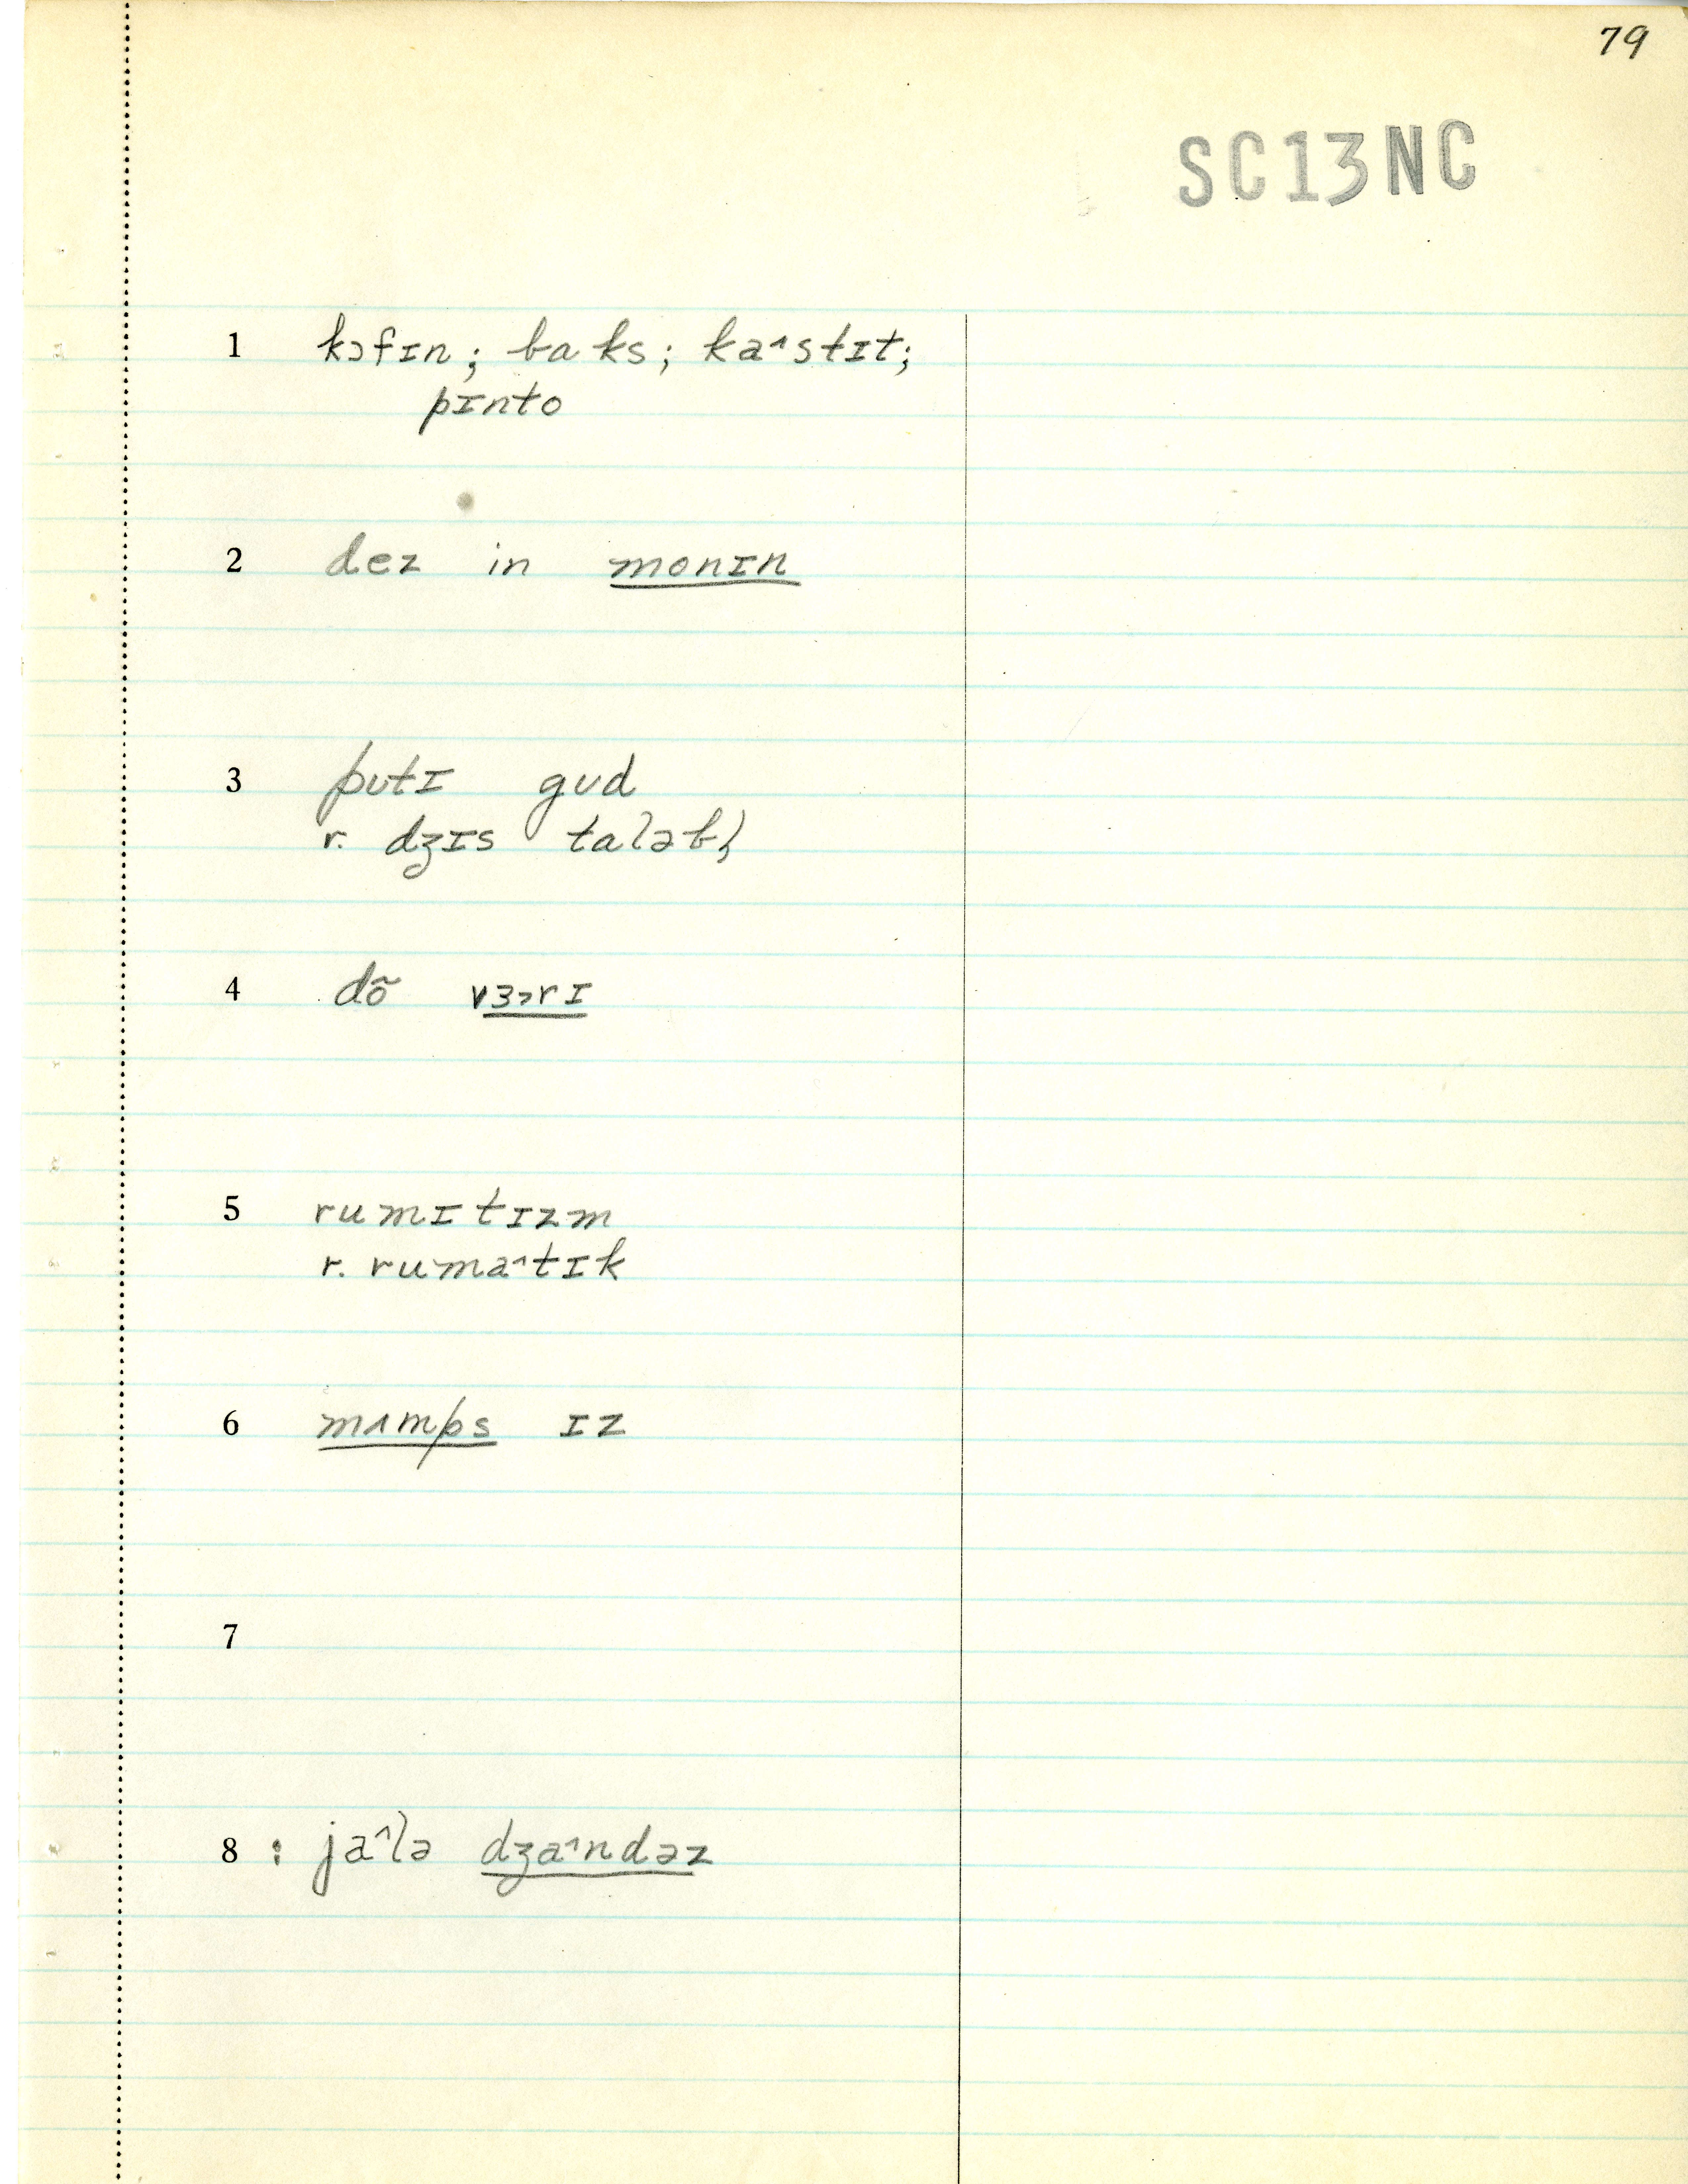 79
SC13NC
1 kɔfɪn; baks; ka^stɪt;
pɪnto
2 dez in monɪn
3 pʊtɪ gʊd
r. dʒɪs taləbl̩
4 dõ vɜɔrɪ
5 rumɪtɪzm
r. ruma^tɪk
6 mʌmps ɪz
7
8 : ja^lə dʒa^ndəz